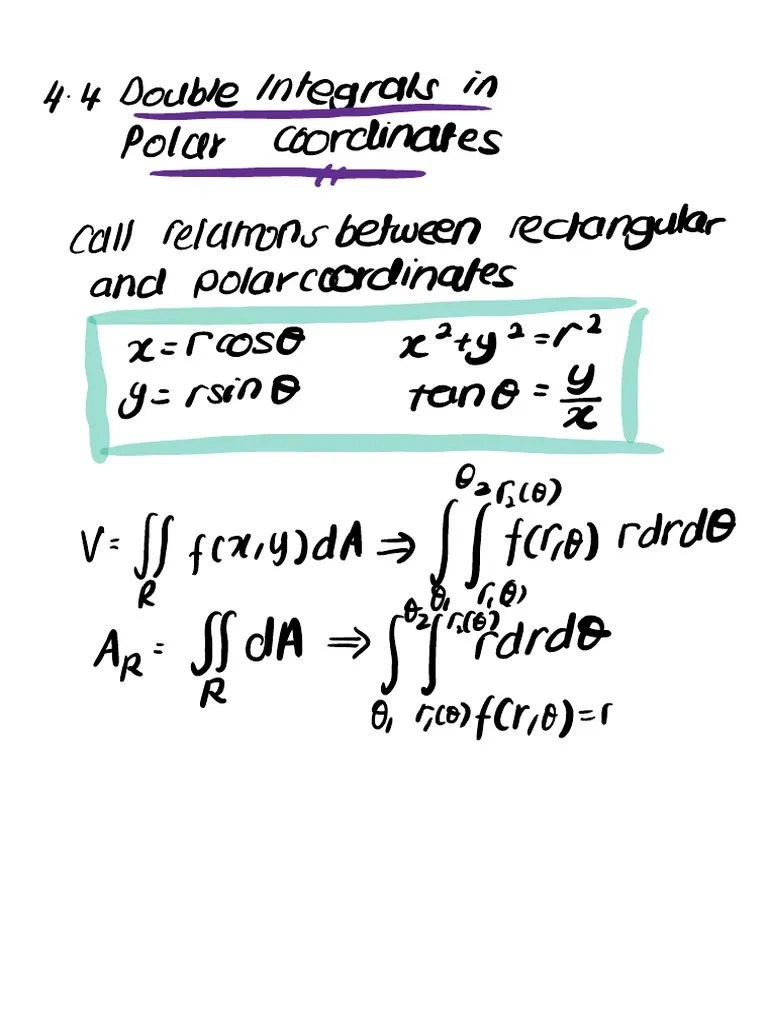 4.4 Double Integrals in
Polar coordinates
call relations between rectangular
and polar coordinates
x = r cos θ x² + y² = r²
y = r sin θ tan θ = y/x
V = ∬_R f(x,y) dA ⇒ ∫_{θ₁}^{θ₂} ∫_{r₁(θ)}^{r₂(θ)} f(r,θ) r dr dθ
A_R = ∬_R dA ⇒ ∫_{θ₁}^{θ₂} ∫_{r₁(θ)}^{r₂(θ)} r dr dθ
f(r,θ) = r